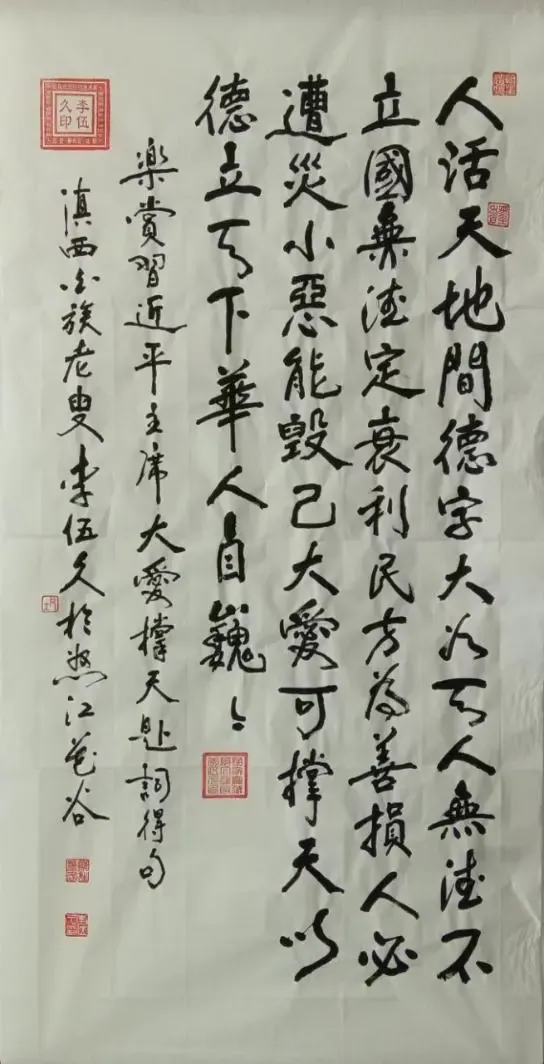 人活天地間德字大天人無德不
立國無德定衰利民方為善損人必
遭災小惡能毀己大愛可撐天以
德立天下華人自巍〻
楽賞習近平主席大愛撐天題詞得句
滇西白族老叟李伍久扵怒江花谷
李伍久印